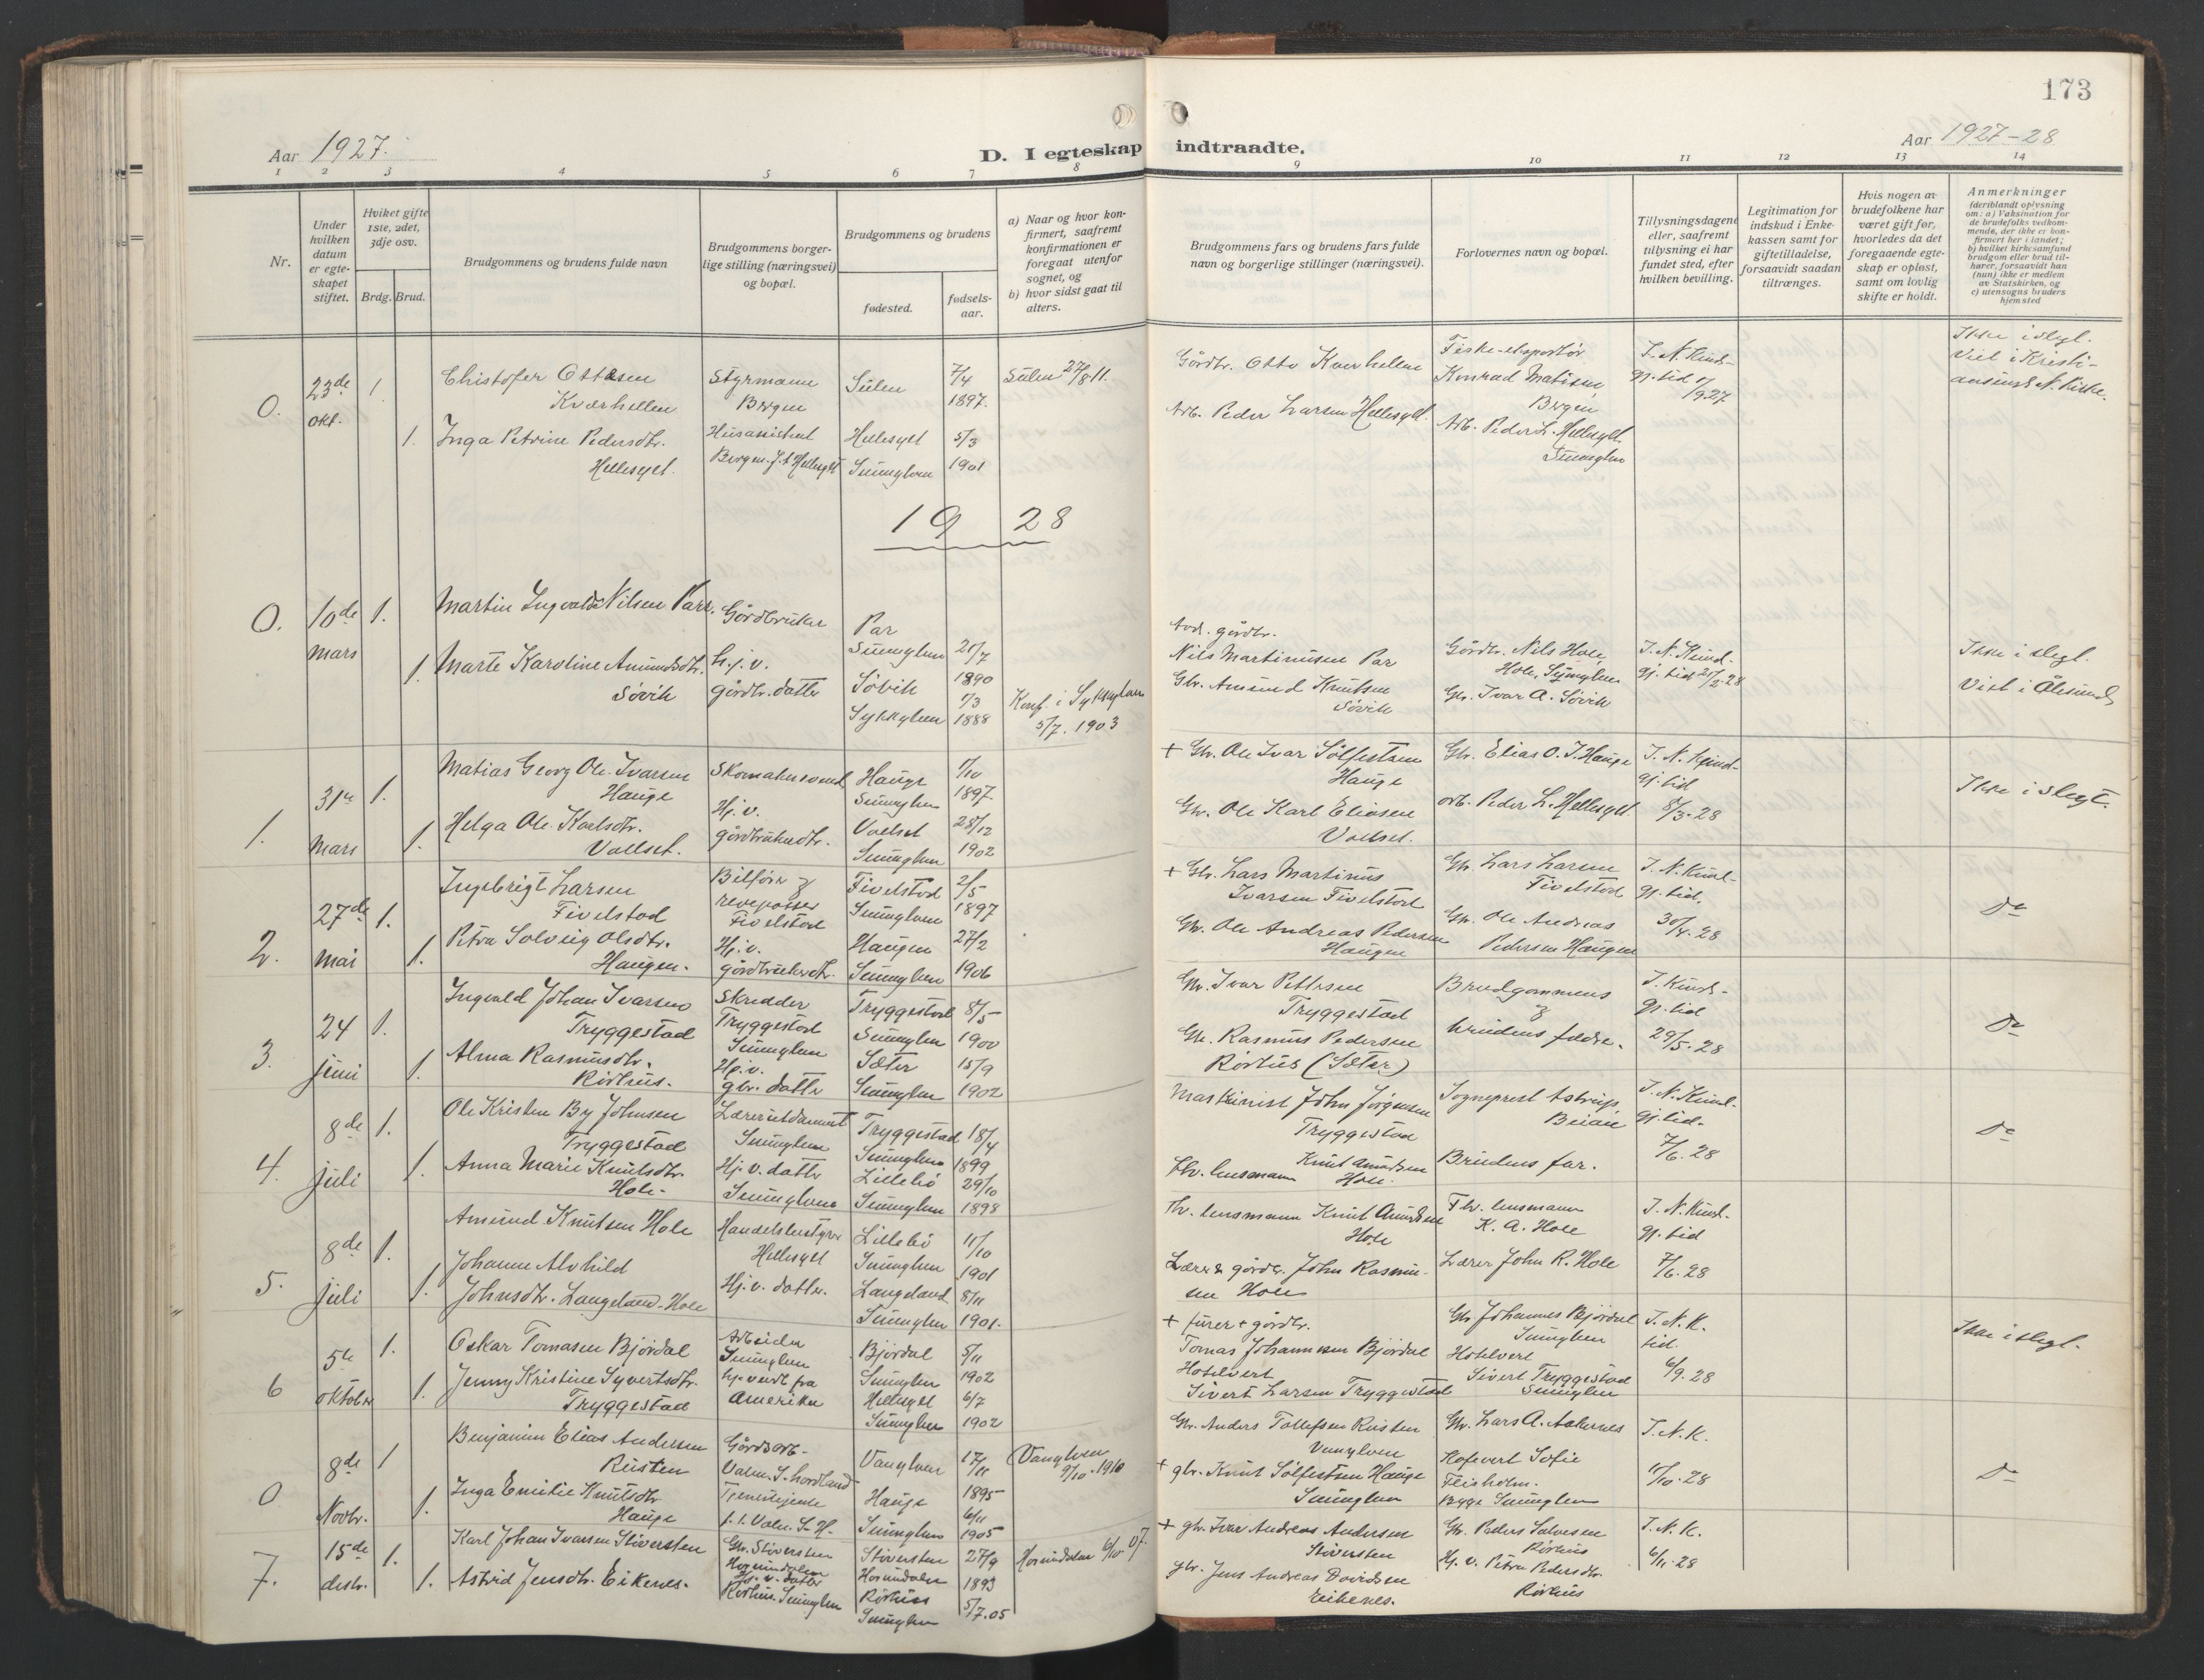 173
Aar 1927.
D. I egteskap indtraadte.
Aar 1927-28
1 2 3 4 5 6 7 8 9 10 11 12 13 14
Nr.
Under
hvilken
datum
er egte-
skapet
stiftet.
Hviket gifte
1ste, 2det,
3dje osv.
Brdg. Brud.
Brudgommens og brudens fulde navn
Brudgommens borger-
lige stilling (næringsvei)
og bopæl.
Brudgommens og brudens
fødested.
fødsels-
aar.
a) Naar og hvor kon-
firmert, saafremt
konfirmationen er
foregaat utenfor
sognet, og
b) hvor sidst gaat til
alters.
Brudgommens fars og brudens fars fulde
navn og borgerlige stillinger (næringsvei).
Forlovernes navn og bopæl.
Tillysningsdagene
eller, saafremt
tillysning ei har
fundet sted, efter
hvilken bevilling.
Legitimation for
indskud i Enke-
kassen samt for
giftetilladelse,
forsaavidt saadan
tiltrænges.
Hvis nogen av
brudefolkene har
været gift før,
hvorledes da det
foregaaende egte-
skap er opløst,
samt om lovlig
skifte er holdt.
Anmerkninger
(deriblandt oplysning
om: a) Vaksination for
de brudefolks vedkom-
mende, der ikke er kon-
firmert her i landet;
b) hvilket kirkesamfund
brudgom eller brud til-
hører, forsaavidt han
(hun) ikke er medlem
av Statskirken, og
c) utensogns bruders
hjemsted
0.
23de
okt.
1.
1.
Christofer Ottesen
Kværhellen
Inga Petrine Pedersdtr.
Hellesylt.
Styrmann
Bergen
Husassistent
Bergen. f. t. Hellesylt
Sulen
Hellesylt
Sunnylven
7/4
1897.
5/3
1901
Sulen 27/8 11.
Gårdbr. Otto Kverhellen
Arb. Peder Larsen Hellesylt.
Fiske-eksportør
Konrad Matisen,
Bergen
Arb. Peder L. Hellesylt
Sunnylven
I. N. Kund-
gj. tid
Ikke i slegt.
Viet i Kristi-
1928
0.
10de
mars
1.
1.
Martin Ingvald Nilsen Parr.
Marte Karoline Amundsdtr.
Søvik
Gårdbruker
h.j.v.
gårdbr. datter
Par
Sunnylven
Søvik
Sykkylven
21/7
1890
1/3
1888
Konf. i Sykkylven
5/7. 1903
gårdbr.
Nils Martinusen Par
Gbr. Amund Knutsen
Søvik
Gårdbr. Nils Hole,
Hole, Sunnylven
Gbr. Ivar A. Søvik
I. N. Kund-
gj. tid 21/2-28
Ikke i slegt.
Viet i Ålesund
1.
31te
Mars
1.
1.
Matias Georg Ole-Ivarsen
Hauge
Helga Ole-Karlsdtr.
Vollset.
Skomakersvend
Hj. v.
gårdbrukerdtr.
Hauge
Sunnylven
Vollset
Sunnylven
1/10
1897
28/12
1902
+ Gbr. Ole Ivar Sølfestsen
Hauge
Gbr. Ole Karl Eliasen
Vollset.
Gbr. Elias O. I. Hauge
arb. Peder L. Hellesylt.
I. N. Kund-
gj. tid
8/3-28
Ikke i slegt.
2.
27de
Mai
1.
1.
Ingebrigt Larsen
Fivelstad
Petra Solveig Olsdtr.
Haugen.
Bilfører &
revepasser
Fivelstad
Hj. v.
gårdbrukerdtr.
Fivelstad
Sunnylven
Haugen
Sunnylven
2/5
1897
27/2
1906
+ Gbr. Lars Martinus
Ivarsen Fivelstad
Gbr. Ole Andreas Pedersen
Haugen
Gbr. Lars Larsen
Fivelstad
Gbr. Ole Andreas
Pedersen Haugen
I. N. Kund-
gj. tid,
30/4.28
Do
3.
24
juni
1.
1.
Ingvald Johan Ivarsen
Tryggestad
Alma Rasmusdtr.
Rørhus.
Skredder
Tryggestad
Sunnylven
Hj. v.
gbr. datter
Tryggestad
Sunnylven
Sæter
Sunnylven
8/5
1900
15/9
1902
Gbr. Ivar Pettersen
Tryggestad
Gbr. Rasmus Pedersen
Rørhus (Sæter)
Brudgommens
&
brudens fædre.
I. Kund-
gj. tid
29/5-28
Do
4.
8de
juli
1.
1.
Ole Kristen By Johnsen
Tryggestad
Anna Marie Knutsdtr.
Hole.
Lærerutdannet
Sunnylven
Hj. v. datter
Sunnylven
Tryggestad
Sunnylven
Lillebø
Sunnylven
18/4
1899
29/10
1898
Maskinist John Jørgensen
Tryggestad
Fhv. lensmann Knut Amundsen
Hole.
Sogneprest Astrup,
Beian
Brudens far.
I. N. Kund-
gj. tid-
7/6.28
Do
5.
8de
juli
1.
1.
Amund Knutsen Hole
Johanne Alvhild
Johnsdtr. Langeland-Hole
Handelsbestyrer
Hellesylt
Hj. v. datter.
Lillebø
Sunnylven
Langeland
Sunnylven
11/10
1901
8/11
1901.
Fhv. lensmann Knut Amundsen
Hole
Lærer & gårdbr. John Rasmus-
sen Hole
Fhv. lensmann
K. A. Hole
Lærer John R. Hole
I. N. Kund-
gj. tid
7/6.28
6
5te
oktober
1.
1.
Oskar Tomasen Bjørdal
Jenny Kristine Syvertsdtr.
Tryggestad
Arbeider
Sunnylven
hj. vendt fra
Amerika
Bjørdal
Sunnylven
Hellesylt
Sunnylven
5/11
1902
6/7
1902
+ furer + gårdbr.
Tomas Johannesen Bjørdal
Hotelvert
Sivert Larsen Tryggestad
Gbr Johannes Bjørdal
Sunnylven
Hotelvert
Sivert Tryggestad
Sunnylven
I. N. K.
tid.
6/9.28
Ikke i slegt.
0
8de
Novbr.
1
1.
Benjamin Elias Andersen
Rusten
Inga Emilie Knutsdtr
Hauge
Gårdsarb-
Tjenestepike
Vanylven
Hauge
Sunnylven
17/11
1895
6/11
1905
(Vanylven
9/10.1910
Gbr. Anders Tollefsen Rusten
Vanylven
+ gbr. Knut Sølfestsen Hauge
Sunnylven
Gbr. Lars A. Aakernes
Sofie
Flisholm.
Bygge Sunnylven
I. N. K.
11/10-28
Do
7.
15de
desbr.
1.
1.
Karl Johan Ivarsen Støversten
Astrid Jensdtr. Eikenes.
Gbr. Støversten
Hornindalen
Hj. v. datter
Rørhus. Sunnylven
Støversten
Hornindalen
Rørhus
Sunnylven
27/9
1893
5/7.05
Hornindalen 6/10 07.
+ gbr. Ivar Andreas Andersen
Støversten
gbr. Jens Andreas Davidsen
Eikenes.
Gbr. Peder Salvesen
Rørhus
Hj. v. Petra Pedersdtr.
Rørhus
I. N. K.
6/11-28